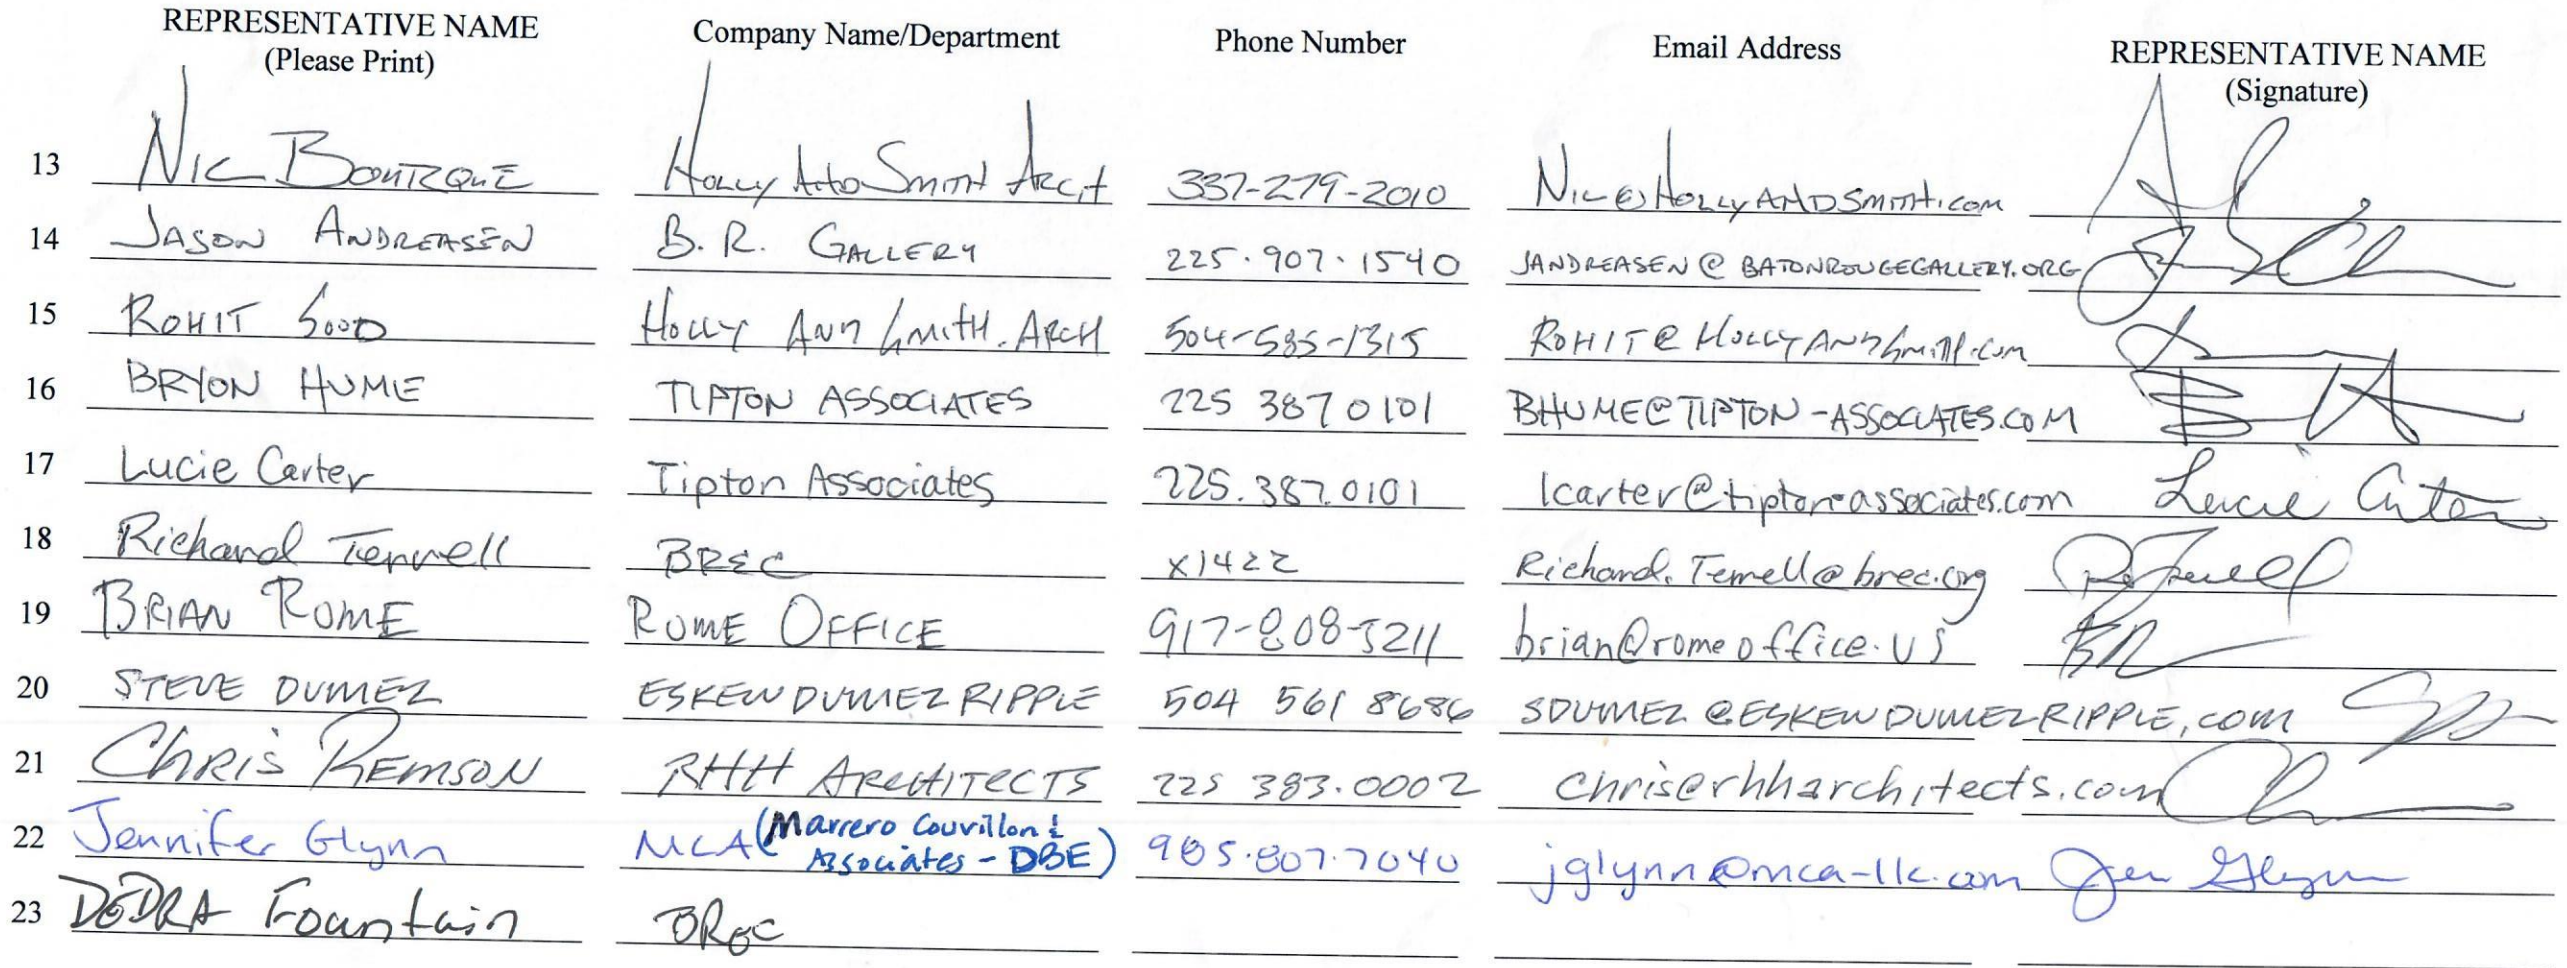 REPRESENTATIVE NAME Company Name/Department Phone Number Email Address REPRESENTATIVE NAME
(Please Print) (Signature)
13 NIC BOURZQUE HOLLY AND SMITH ARCH 337-279-2010 NIC@HOLLYANDSMITH.COM
14 JASON ANDREASEN B.R. GALLERY 225.907.1540 JANDREASEN@BATONROUGEGALLERY.ORG
15 ROHIT SOOD HOLLY AND SMITH.ARCH 504-585-1315 ROHIT@HOLLYANDSmith.com
16 BRYON HUME TIPTON ASSOCIATES 225 387 0101 BHUME@TIPTON-ASSOCIATES.COM
17 Lucie Carter Tipton Associates 225.387.0101 lcarter@tipton-associates.com Lucie Carter
18 Richard Terrell BREC x1422 Richard.Terrell@brec.org RTerrell
19 BRIAN ROME ROME OFFICE 917-808-5211 brian@romeoffice.us BR
20 STEVE DUMEZ ESKEWDUMEZRIPPLE 504 561 8686 SDUMEZ@ESKEWDUMEZRIPPLE.COM
21 CHRIS REMSON RHH ARCHITECTS 225 383.0002 chris@rhharchitects.com
22 Jennifer Glynn MCA (Marrero Couvillon & Associates - DBE) 985.807.7040 jglynn@mca-llc.com Jen Glynn
23 DEDRA Fountain BREC